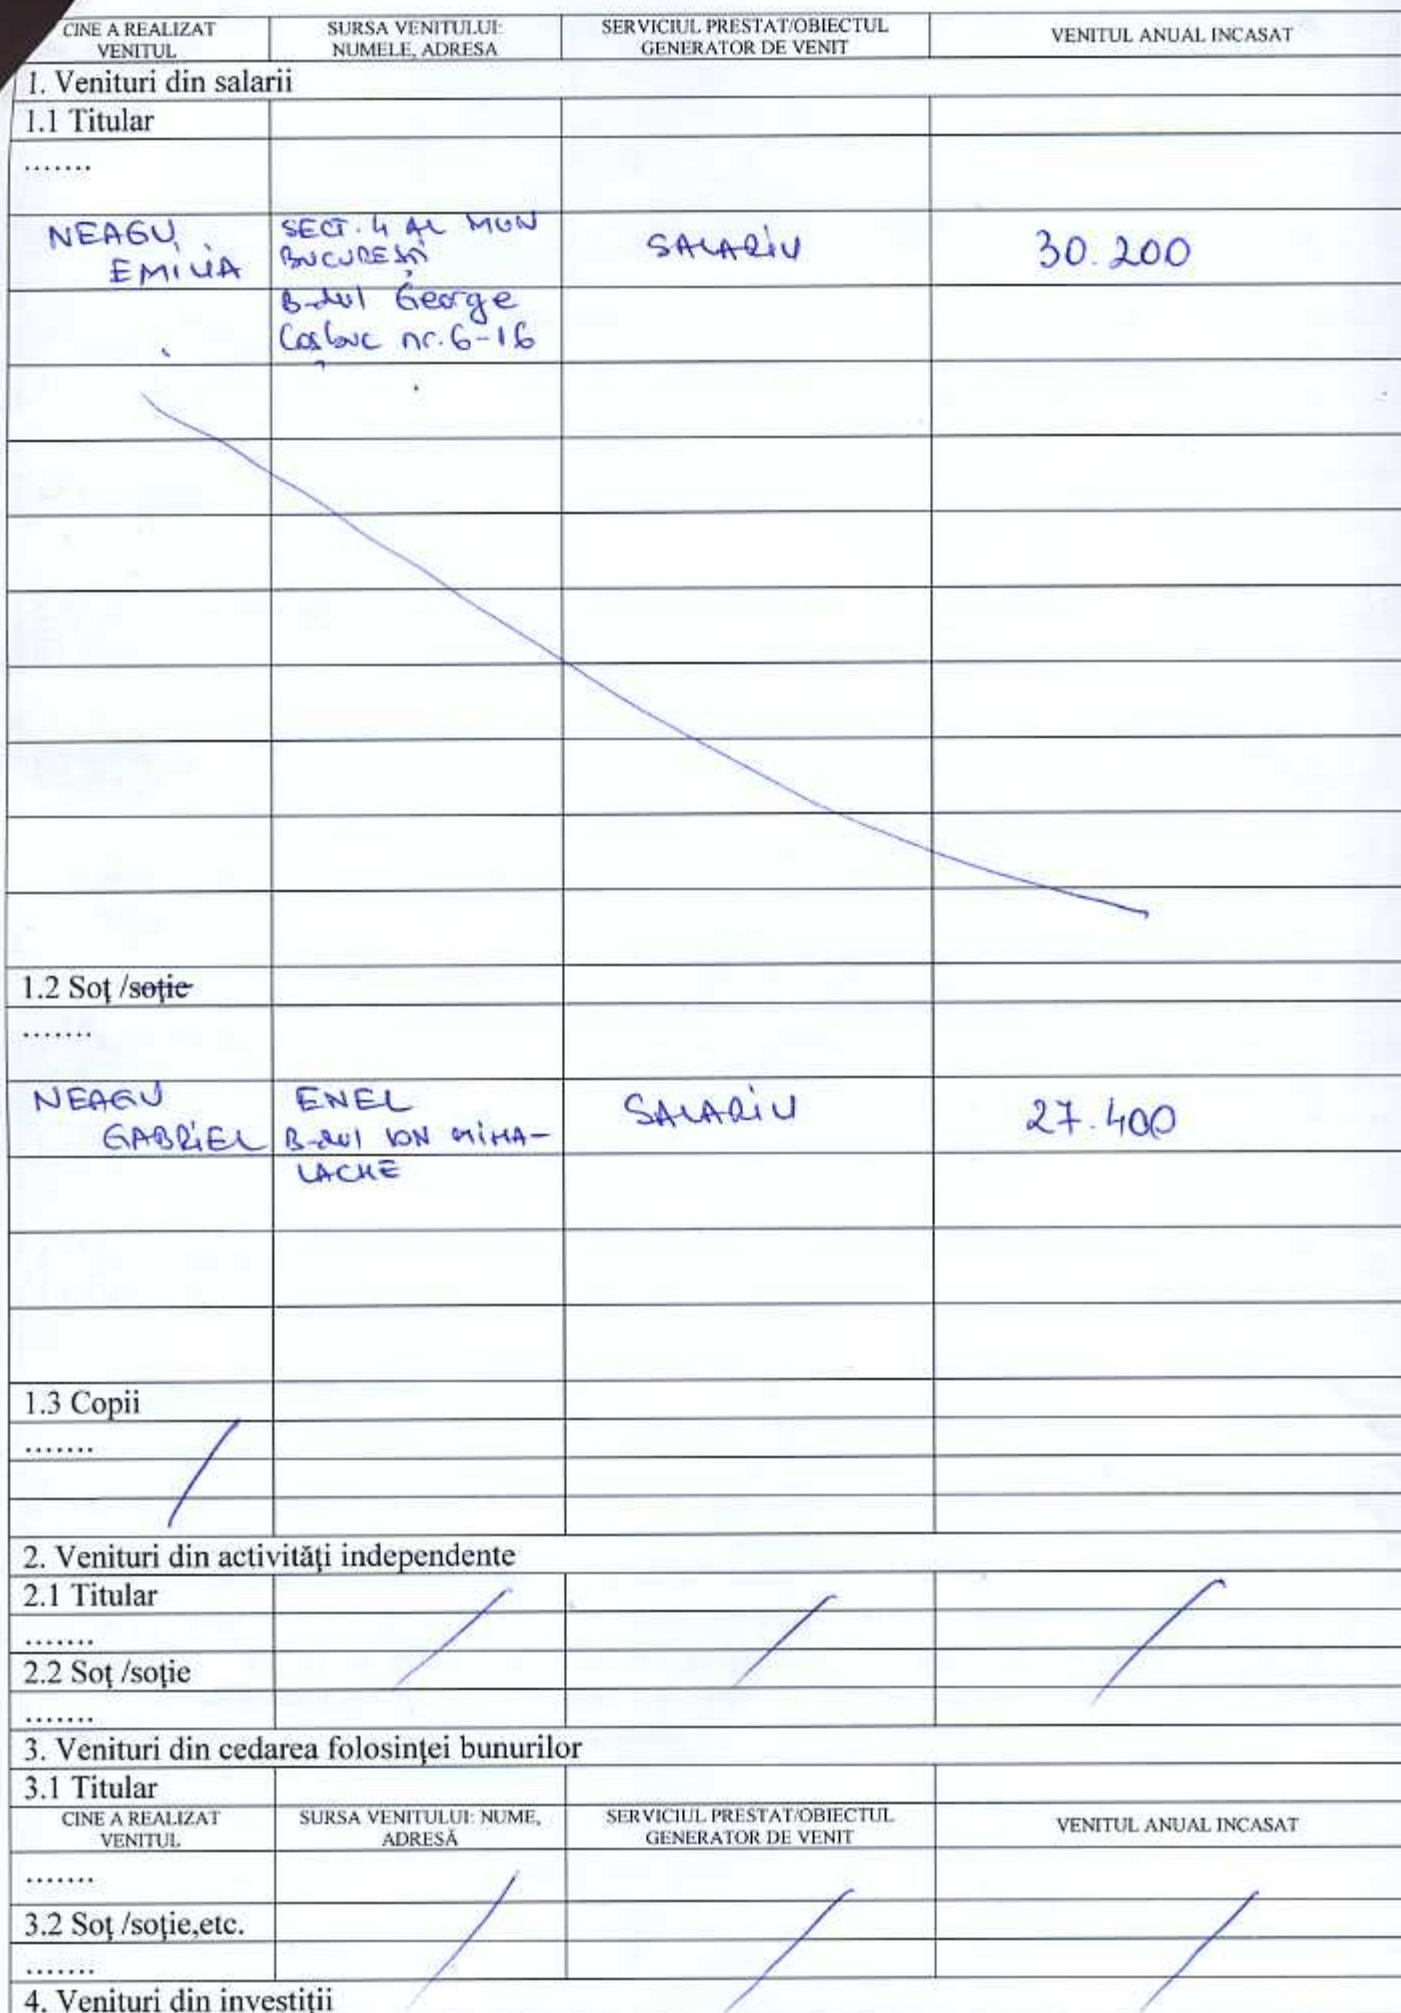 CINE A REALIZAT
VENITUL
SURSA VENITULUI:
NUMELE, ADRESA
SERVICIUL PRESTAT/OBIECTUL
GENERATOR DE VENIT
VENITUL ANUAL INCASAT
1. Venituri din salarii
1.1 Titular
.......
NEAGU
EMILIA
SECT. 4 AL MUN
BUCUREȘTI
B-dul George
Coșbuc nr. 6-16
SALARIU
30.200
1.2 Soţ /soţie
.......
NEAGU
GABRIEL
ENEL
B-dul ION MIHA-
LACHE
SALARIU
27.400
1.3 Copii
.......
2. Venituri din activităţi independente
2.1 Titular
.......
2.2 Soţ /soţie
.......
3. Venituri din cedarea folosinţei bunurilor
3.1 Titular
CINE A REALIZAT
VENITUL
SURSA VENITULUI: NUME,
ADRESĂ
SERVICIUL PRESTAT/OBIECTUL
GENERATOR DE VENIT
VENITUL ANUAL INCASAT
.......
3.2 Soţ /soţie,etc.
.......
4. Venituri din investiţii